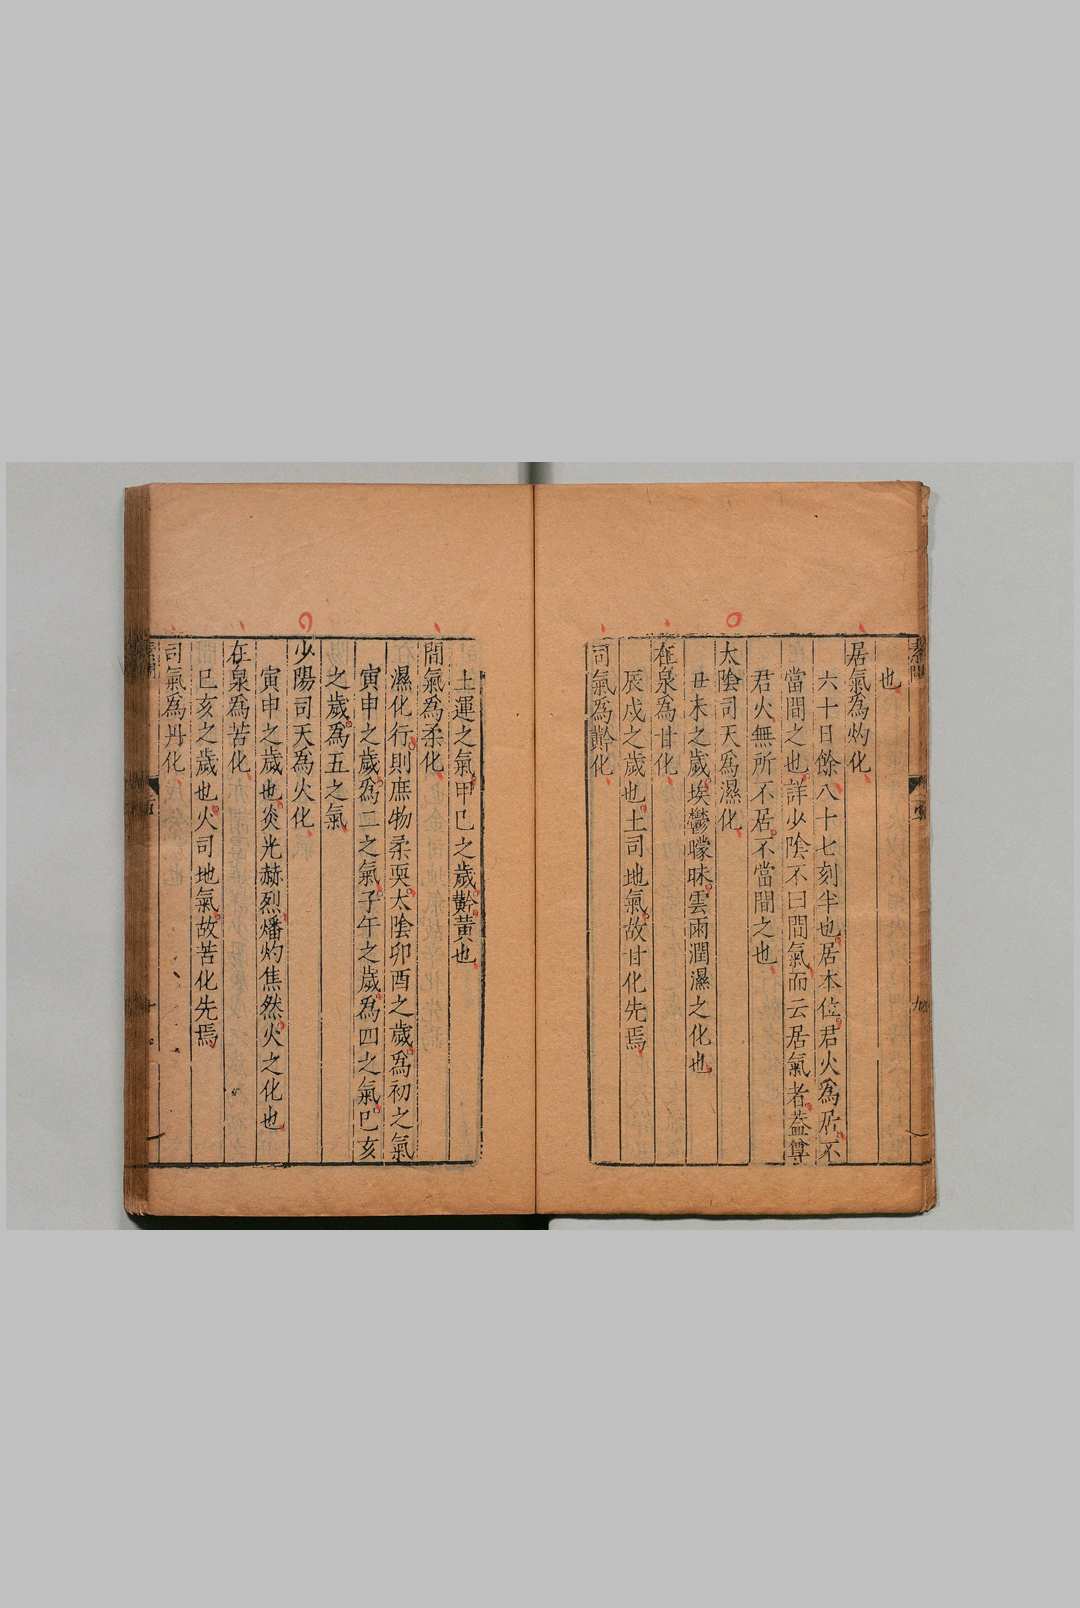 也
居氣為灼化
六十日餘八十七刻半也居本位君火為居不
當間之也詳少陰不曰間氣而云居氣者蓋尊
君火無所不居不當間之也
太陰司天為濕化
丑未之歲埃鬱曚昧雲雨潤濕之化也
在泉為甘化
辰戌之歲也土司地氣故甘化先焉
司氣為黅化
土運之氣甲己之歲黅黃也
間氣為柔化
濕化行則庶物柔耎太陰卯酉之歲為初之氣
寅申之歲為二之氣子午之歲為四之氣巳亥
之歲為五之氣
少陽司天為火化
寅申之歲也炎光赫烈燔灼焦然火之化也
在泉為苦化
巳亥之歲也火司地氣故苦化先焉
司氣為丹化